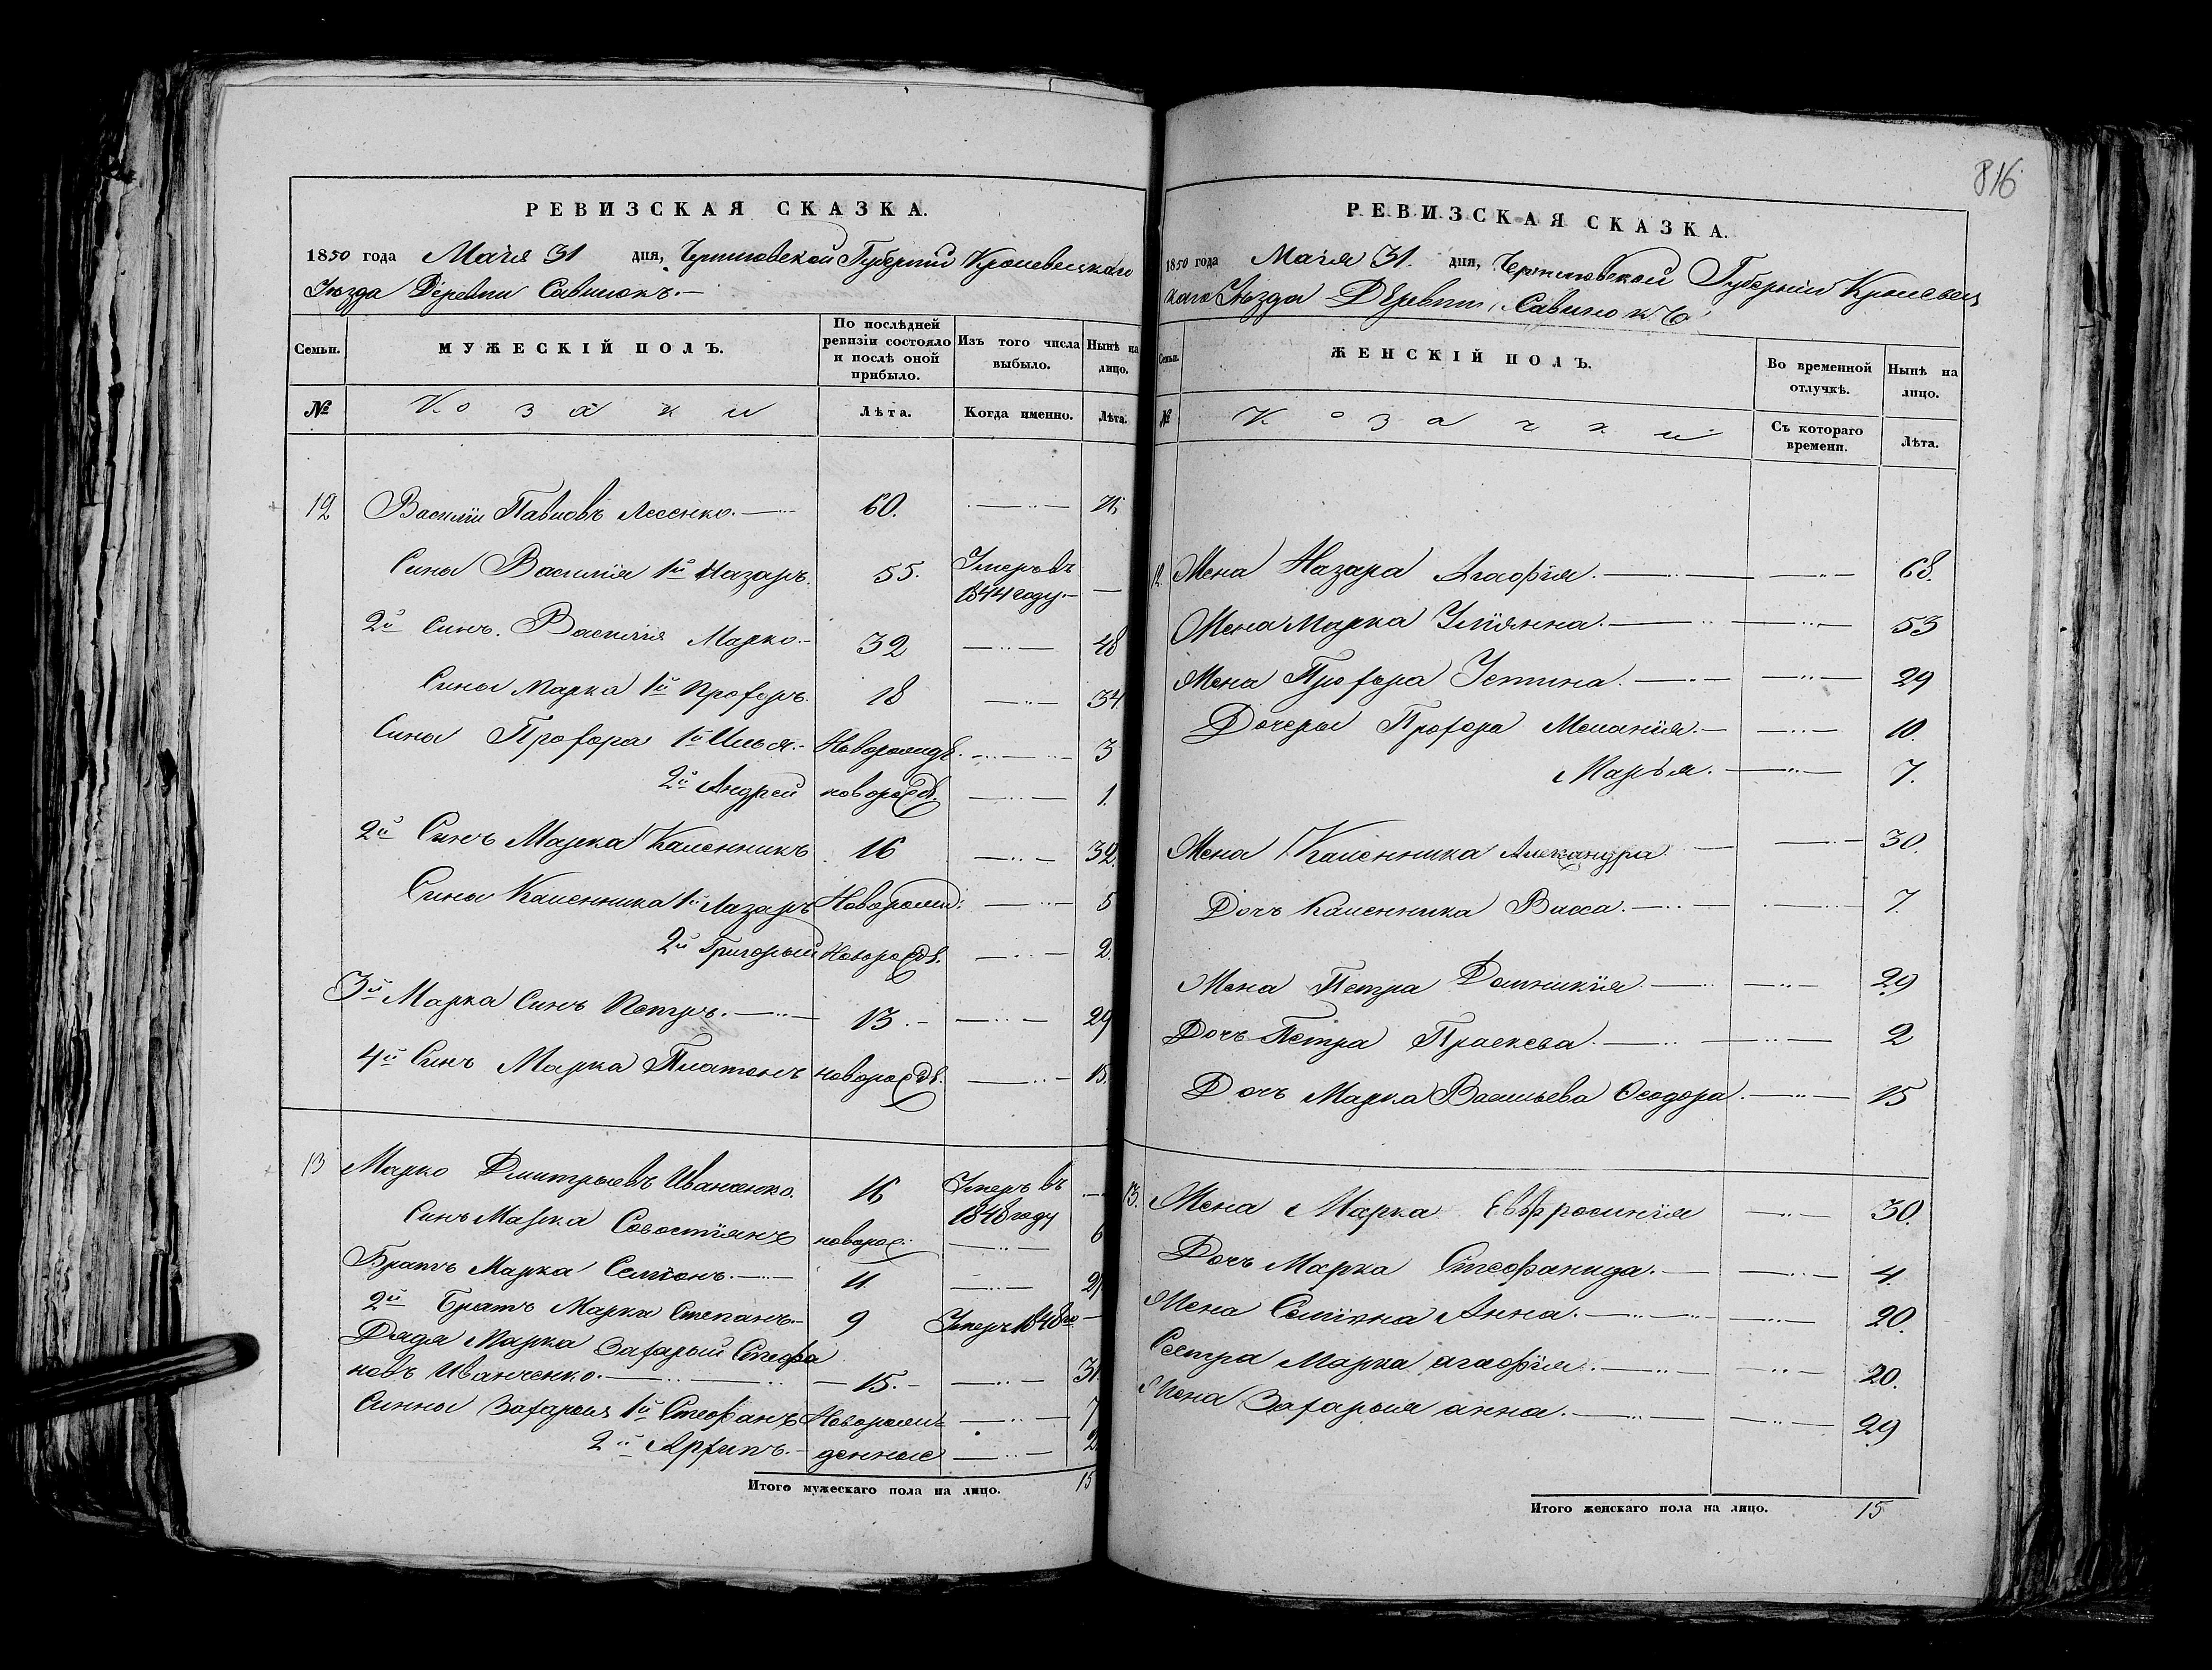 816
РЕВИЗСКАЯ СКАЗКА.
1850 года Маія 31 дня, Черниговской Губерніи Кролевецкаго
Уезда Деревни Савинокъ.
Семьи. МУЖЕСКІЙ ПОЛЪ. По послѣдней ревизіи состояло и послѣ оной прибыло. Изъ того числа выбыло. Нынѣ на лицо.
№ Козаки Лѣта. Когда именно. Лѣта.
12 Василій Павловъ Лесенко. 60. 76
Сины Василія 1й Назаръ. 55. Умеръ въ
1844 году.
2й Синъ Василія Марко. 32 48
Сины Марка 1й Прохоръ. 18 34
Сины Прохора 1й Илья. Новорожд. 3
2й Андрей новорожд. 1.
2й Синъ Марка Каленникъ 16 32.
Сины Каленника 1й Лазаръ Новорожд: 5
2й Григорый Новорожд. 2.
3й Марка Синъ Петръ. 13. 29
4й Синъ Марка Платонъ новорожд. 15.
13 Марко Дмитрыевъ Иваненко. 16 Умеръ въ
1848 году
Синъ Марка Савостіянъ новорож: 6
Братъ Марка Семіонъ. 11 27
2й Братъ Марка Степанъ. 9 Умеръ 1848 го
Дядя Марка Захарый Стефа
новъ Иванченко. 15. 31
Синны Захарыя 1й Стефанъ Новорож 7
2й Архипъ. денные 2
Итого мужескаго пола на лицо. 15
РЕВИЗСКАЯ СКАЗКА.
1850 года Маія 31. дня, Черниговской Губерніи Кролевец
каго Уезда Деревни Савинокъ
Семьи. ЖЕНСКІЙ ПОЛЪ. Во временной отлучкѣ. Нынѣ на лицо.
№ Козачки Съ котораго времени. Лѣта.
12. Жена Назара Агафія. 68.
Жена Марка Уліянна. 53
Жена Прохора Устина. 29
Дочеры Прохора Меланія. 10.
Марья. 7.
Жена Каленника Александра 30.
Дочъ Каленника Васса. 7.
Жена Петра Домникія 29
Дочъ Петра Праскева. 2
Дочъ Марка Васильева Феодора. 15
13. Жена Марка Евфросинія 30.
Дочъ Марка Стефанида. 4.
Жена Семіона Анна. 20.
Сестра Марка агафія. 20.
Жена Захарыя анна. 29
Итого женскаго пола на лицо. 15